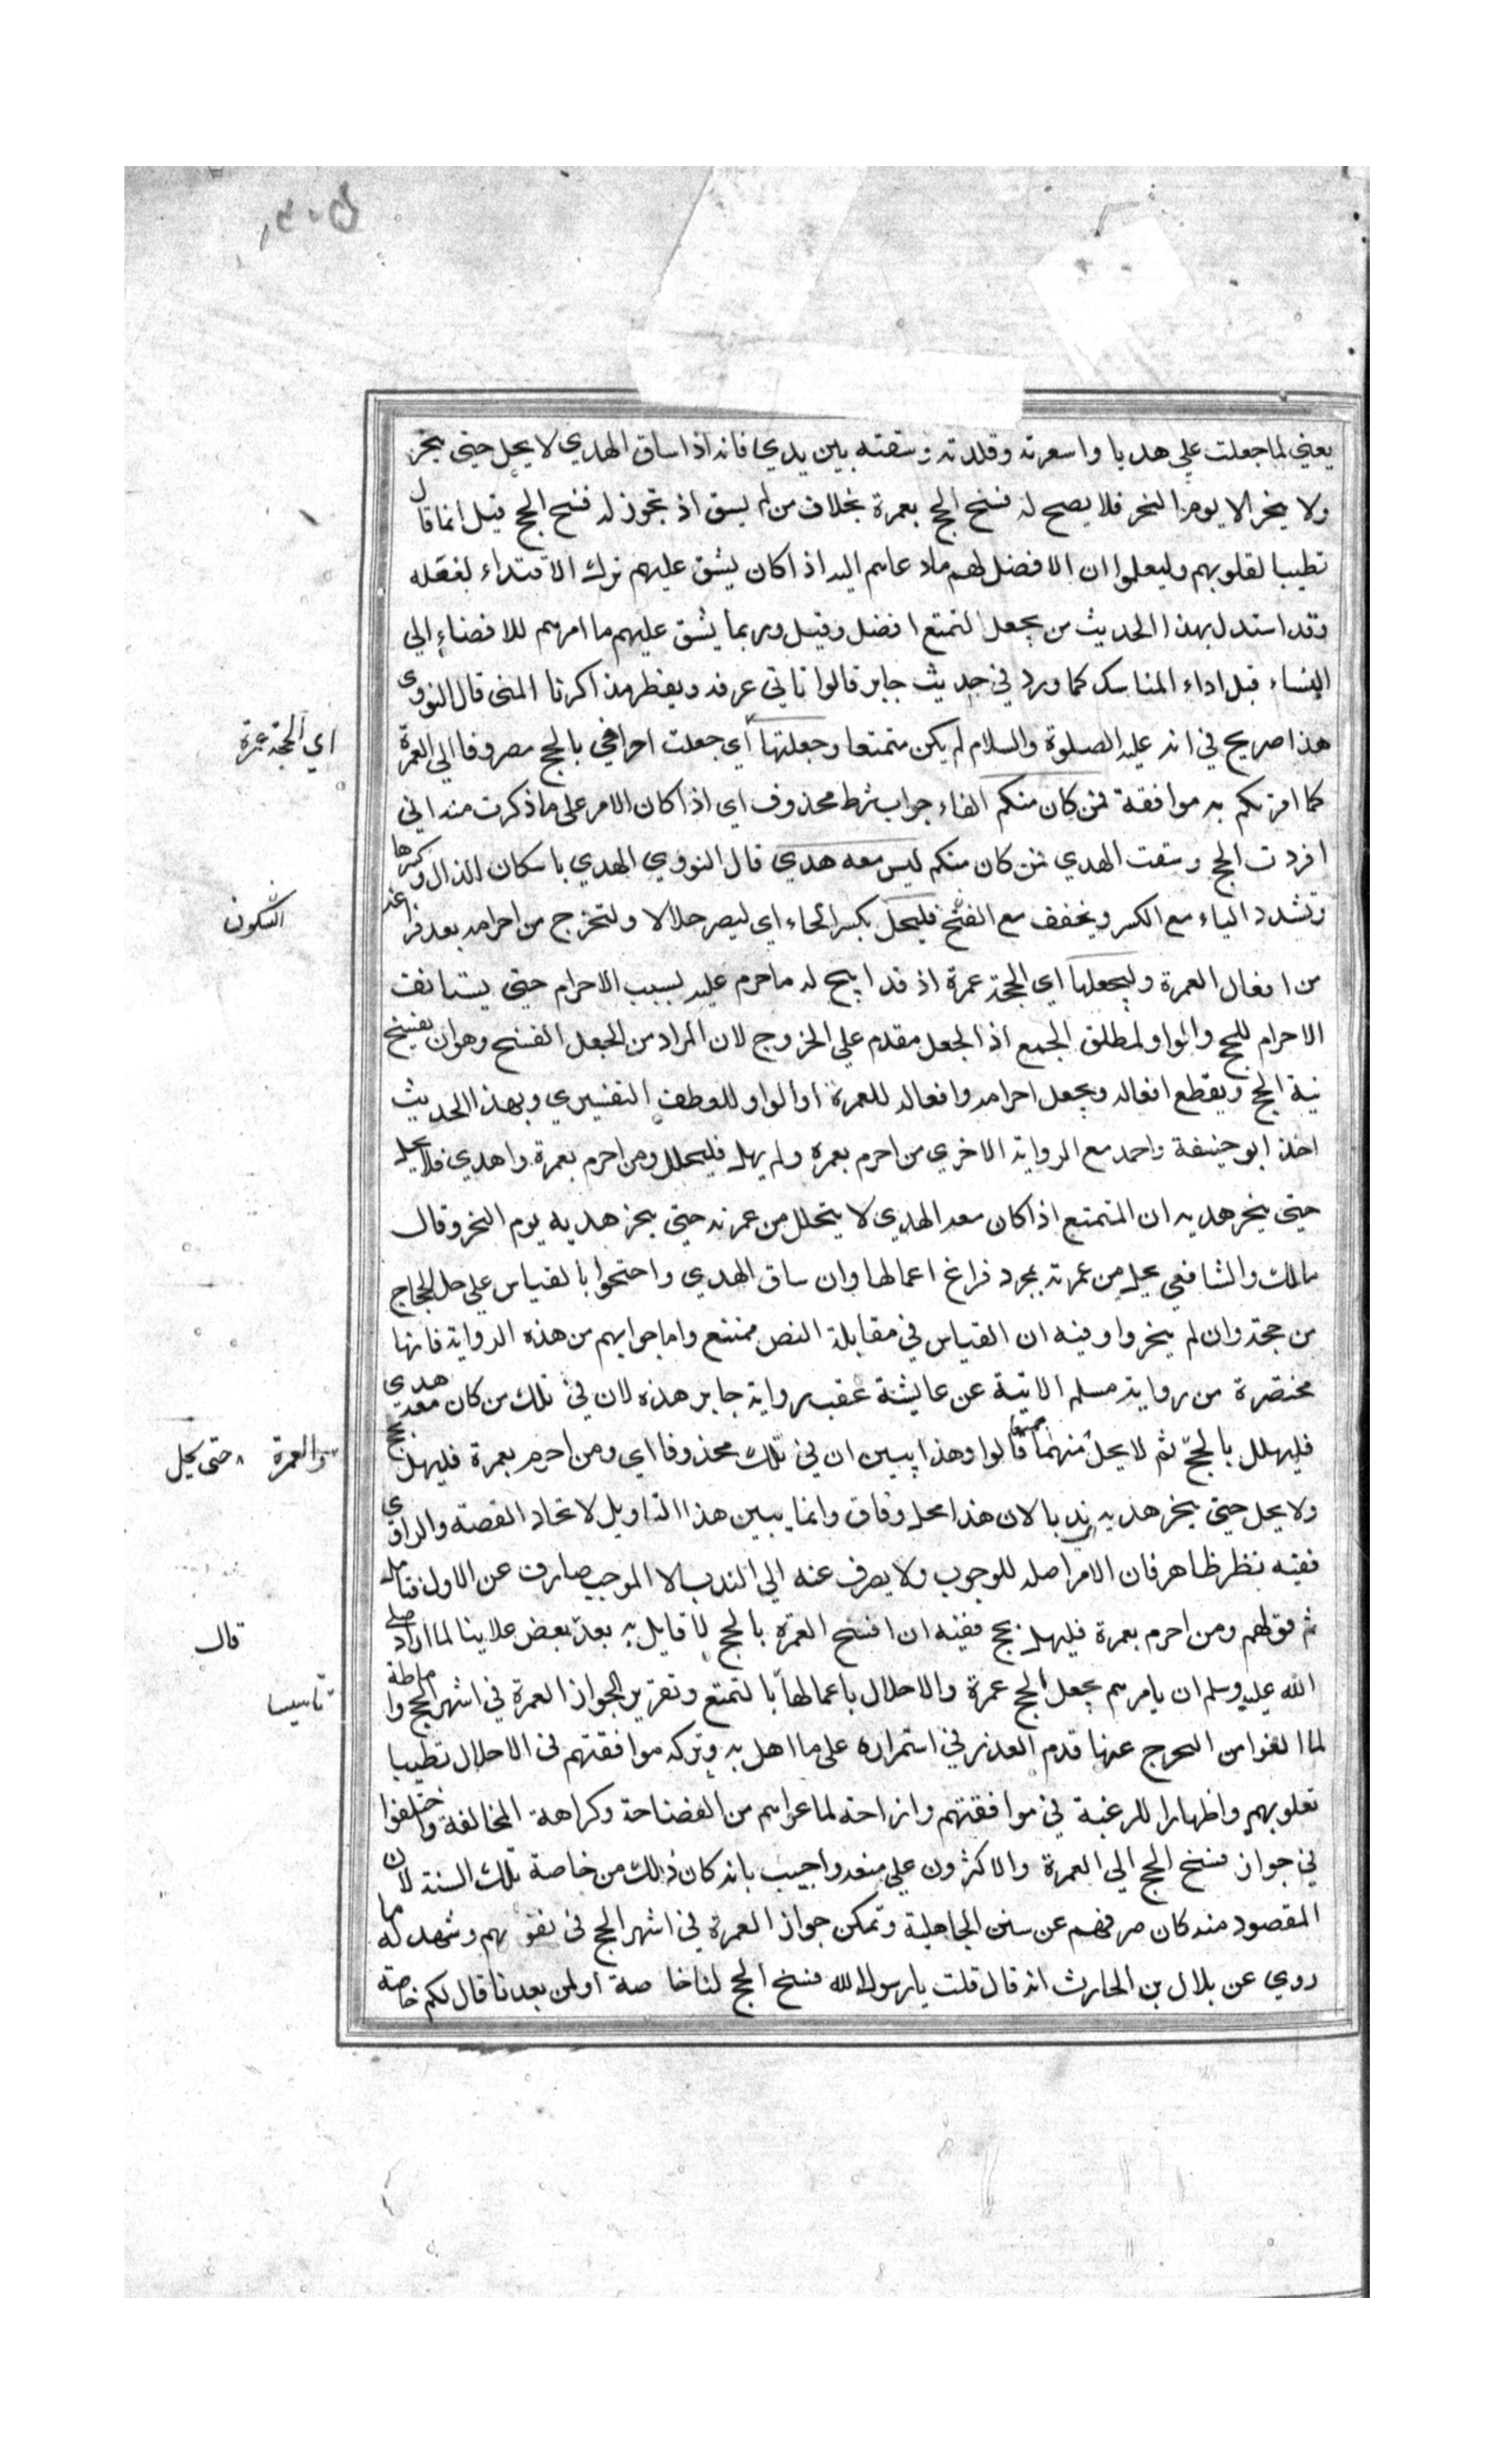 يعني لما جعلت علي هديا واسعرته وقلدته وسقته بين يدي فانه اذا ساق الهدي لا يحل حتى ينحر
ولا ينحر الا يوم النحر فلا يصح له فسخ الحج بعمرة بخلاف من لم يسق اذ تجوز له فسخ الحج قيل انما قال
تطييبا لقلوبهم وليعلموا ان الافضل لهم ما دعاهم اليه اذا كان يشق عليهم ترك الاقتداء بفعله
وقد استدل بهذا الحديث من يجعل التمتع افضل وقيل وربما يشق عليهم ما امرهم للافضاء الي
النساء قبل اداء المناسك كما ورد في حديث جابر قالوا ناتي عرفه ويقطر مذاكرنا المني قال النووي
هذا صريح في انه عليه الصلوة والسلام لم يكن متمتعا وجعلتها اي جعلت احرامي بالحج مصروفا الي العمرة
اي الحجة عمرة
كما امرتكم به موافقة فمن كان منكم الفاء جواب شرط محذوف اي اذا كان الامر على ما ذكرت من اني
افردت الحج وسقت الهدي فمن كان منكم ليس معه هدي قال النووي الهدي باسكان الدال وكسرها
وتشدد الياء مع الكسر ويخفف مع الفتح فليحل بكسر الحاء اي ليصر حلالا ولتخرج من احرامه بعد فراغه
السكون
من افعال العمرة وليجعلها اي الحجة عمرة اذ قد ابيح له ما حرم عليه بسبب الاحرام حتى يستانف
الاحرام للحج والواو لمطلق الجمع اذ الجعل مقدم علي الخروج لان المراد من الجعل الفسخ وهو ان يفسخ
نية الحج ويقطع افعاله ويجعل احرامه وافعاله للعمرة او الواو للعطف التفسيري وبهذا الحديث
اخذ ابو حنيفة واحمد مع الرواية الاخري من احرم بعمره ولم يهد فليحلل ومن احرم بعمرة واهدي فلا يحل
حتى ينحر هديه ان المتمتع اذا كان معه الهدي لا يتحلل من عمرته حتى ينحر هديه يوم النحر وقال
مالك والشافعي يحل من عمرته بمجرد فراغ اعمالها وان ساق الهدي واحتجوا بالقياس علي حل الحاج
من حجته وان لم ينحر وفيه ان القياس في مقابلة النص ممتنع واما جوابهم من هذه الرواية فانها
مختصرة من رواية مسلم الاتية عن عايشة عقب رواية جابر هذه لان في تلك من كان معه هدي
فليهلل بالحج ثم لا يحل منهما جميعا قالوا وهذا يبين ان في تلك محذوفا اي ومن احرم بعمرة فليهل بحج
والعمرة حتى يحل
ولا يحل حتى ينحر هديه ندبا لان هذا محل وفاق وانما يبين هذا التاويل لاتحاد القصة والراوي
ففيه نظر ظاهر فان الامر اصله للوجوب ولا يصرف عنه الي الندب الا الموجب صارف عن الاول فتامل
ثم قولهم ومن احرم بعمرة فليهل بحج ففيه ان افسح العمرة بالحج لا قايل به بعد بعض علاينا لما اراد صلى
قال
الله عليه وسلم ان يامرهم بجعل الحج عمرة والاحلال باعمالها بالتمتع وتقرير الجواز العمرة في اشهر الحج واماطة
تاسيسا
لما الفوا من التحرج عنها قدم العذر في استمراره على ما اهل به وتركه موافقتهم في الاحلال تطييبا
لقلوبهم واظهارا للرغبة في موافقتهم وازاحة لما عراهم من الفضاحة وكراهة المخالفة واختلفوا
في جواز فسخ الحج الي العمرة والاكثرون علي منعه واجيب بانه كان ذلك من خاصة تلك السنة لان
المقصود منه كان صرفهم عن سنن الجاهلية وتمكن جواز العمرة في اشهر الحج في نفوسهم وشهد له ما
روي عن بلال بن الحارث انه قال قلت يا رسول الله فسخ الحج لنا خاصة او لمن بعدنا قال لكم خاصة